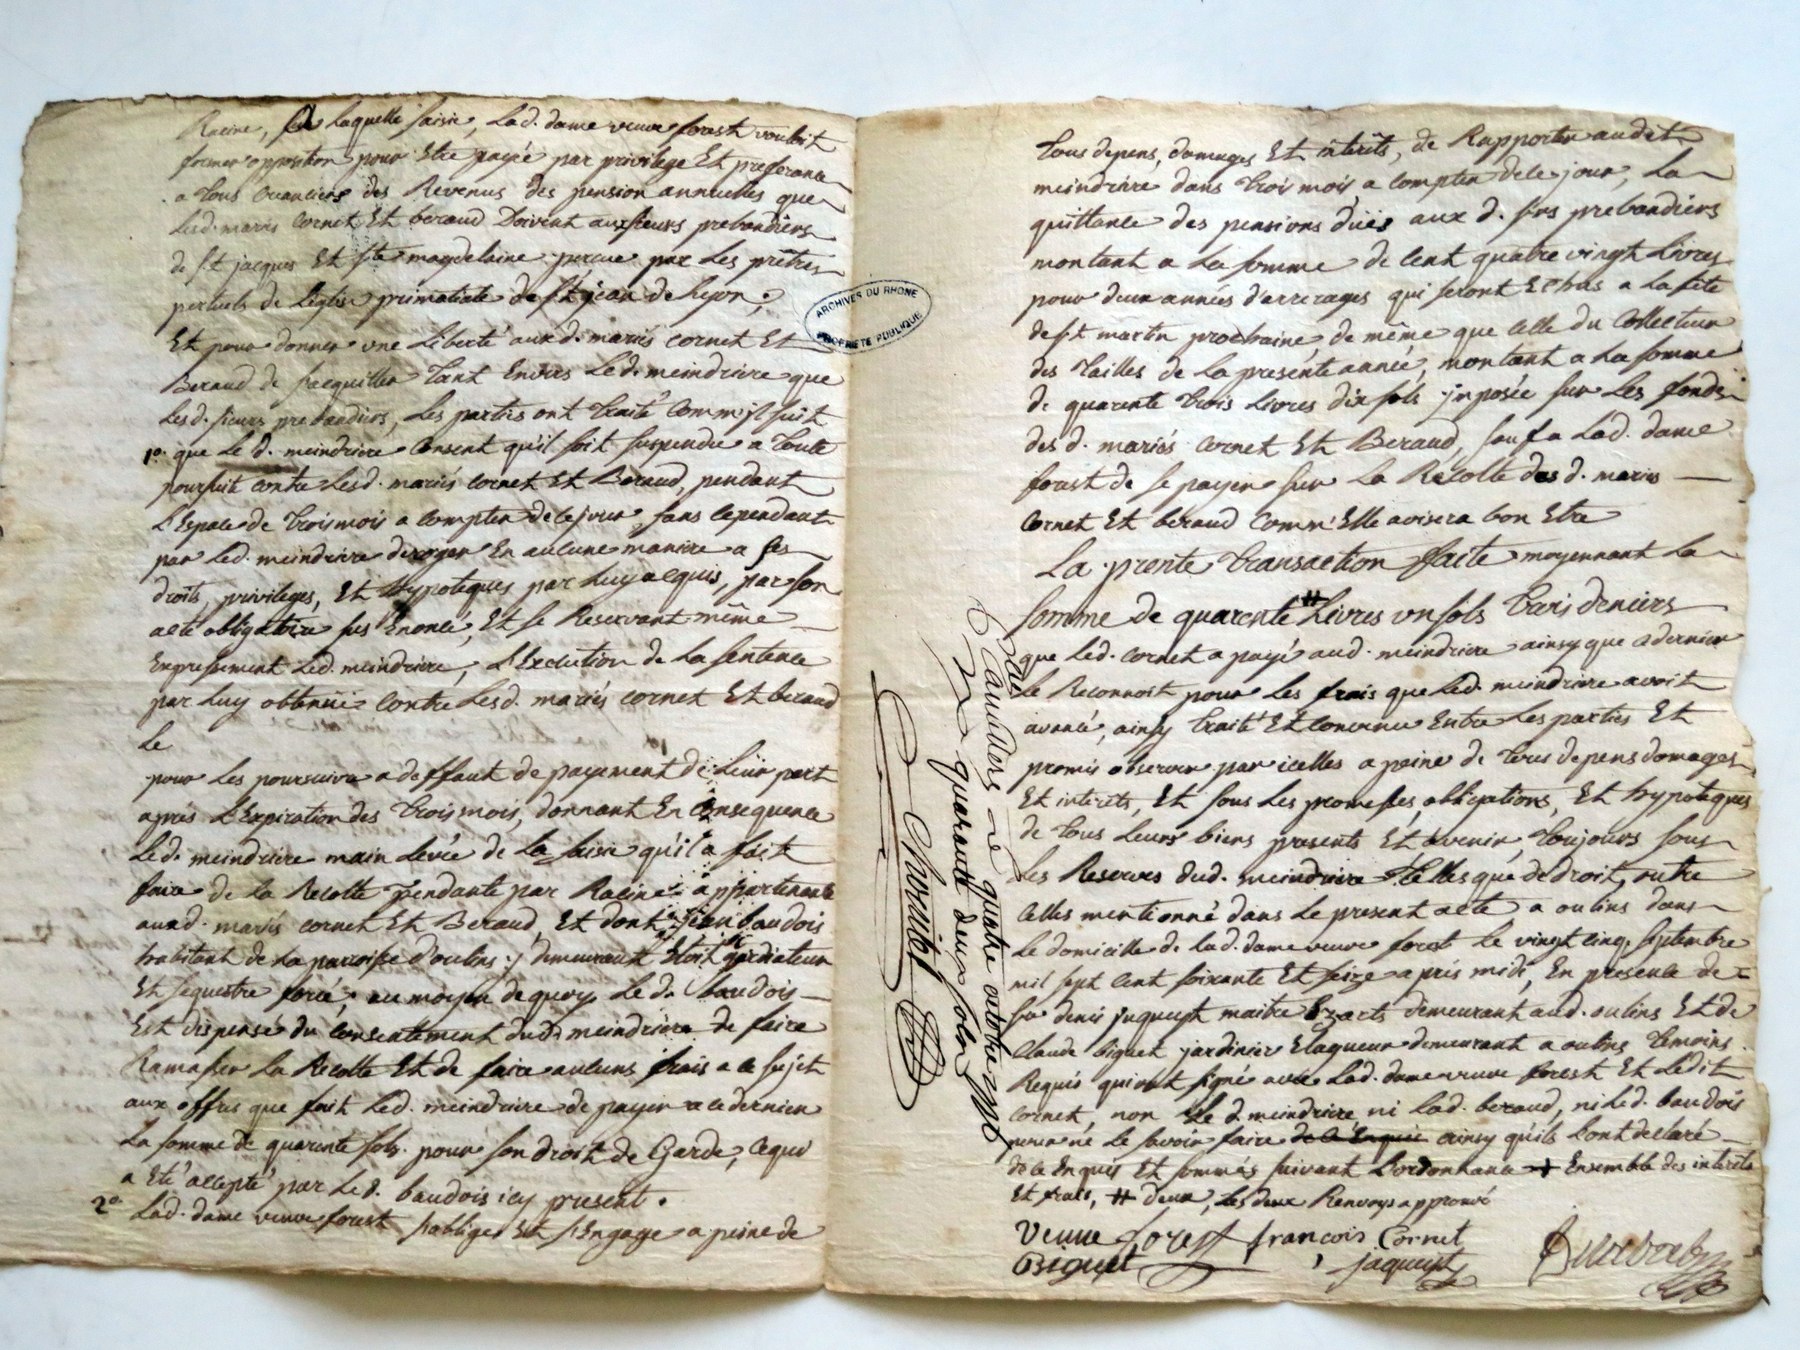 Racine, a laquelle saisie, lad. dame veuve forest vouloit
former opposition pour Etre payée par privilege Et preferance
a tous Creanciers des Revenus des pension annuelles que
lesd. mariés Cornet Et beraud Doivent aux sieurs prebandiers
de st. jacques Et ste magdelaine perçue par les prêtres
perpetuels de l'Eglise primatiale de st. jean de Lyon,
Et pour donner une liberté auxd. mariés cornet Et
Beraud de s'acquitter tant Envers led. meindriere que
lesd. sieurs prebandiers, les parties ont traité comm'jl suit
1º. que le d. meindriere Consent qu'il soit suspendu a toute
poursuite contre lesd. mariés cornet Et Beraud, pendant
L'Espace de trois mois a compter de ce jour, sans cependant
par led. meindriere deroger En aucune maniere a ses
droits, privileges, Et hypoteques par luy acquis, par son
acte obligatoire sus Enoncé, Et se Reservant même
Expressement led. meindriere, L'Execution de la sentence
par luy obtenüe contre lesd. mariés cornet Et beraud
le
pour les poursuivre a deffaut de payement de leur part
après L'Expiration des trois mois, donnant En Consequence
led. meindriere main levée de la saisie qu'il a fait
faire de la Recolte pendante par Racine appartenante
auxd. mariés cornet Et Beraud, Et dont jean baudois
habitant de la paroisse d'oulins y demeurant Etoit gardiateur
Et sequestre forcé, au moyen de quoy le d. baudois
Est dispensé du consentement dud. meindriere de faire
Ramasser la Recolte Et de faire aucuns frais a ce sujet
aux offres que fait led. meindriere de payer a ce dernier
la somme de quarente sols pour son droit de Garde, ce qui
a Eté accepté par le d. baudois icy present.
2º. Lad. dame veuve forest s'oblige Et s'Engage a peine de
ARCHIVES DU RHONE
PROPRIETE PUBLIQUE
tous depens, domages Et interêts, de Rapporter audit
meindriere dans trois mois a compter de ce jour, la
quittance des pensions dües aux d. srs prebandiers
montant a la somme de cent quatre vingt livres
pour deux années d'arrerages qui seront Echus a la fête
de st martin prochaine de même que celle du Collecteur
des tailles de la presente année, montant a la somme
de quarente trois livres dix sols jmposée sur les fonds
des d. mariés Cornet Et Beraud, sauf a lad. dame
forest de se payer sur la Récolte des d. mariés
Cornet Et beraud comm'Elle avisera bon Etre
La prente transaction faite moyennant la
somme de quarente # Livres un sols trois deniers
que led. cornet a payé aud. meindriere ainsy que ce dernier
le Reconnoit pour les frais que led. meindriere avoit
avancé, ainsy traité Et convenu Entre les parties Et
promis observer par icelles a peine de tous depens domages
Et interêts, Et sous les promesses, obligations, Et hypoteques
de tous leurs biens presents Et avenir, toujours sous
les Reserves dud. meindriere telles que de droit, outre
celles mentionné dans le present acte a oulins dans
le domicille de lad. dame veuve forest le vingt cinq septembre
mil sept cent soixante Et seize après midi, En presence de
sr denis jaqueyt maitre Ez arts demeurant aud. oulins Et de
Claude biguet jardinier Elagueur demeurant a oulins temoins
Requis qui ont signé avec lad. dame veuve forest Et ledit
Cornet, non le d. meindriere ni lad. beraud, ni led. baudois
pour ne le savoir faire de ce Enquis ainsy qu'ils l'ont declaré
de ce Enquis Et sommés suivant l'ordonnance + Ensemble des interêts
Et frais, # deux, les deux Renvoys approuvé
veuve forest francois Cornet
Biguet jaqueyt